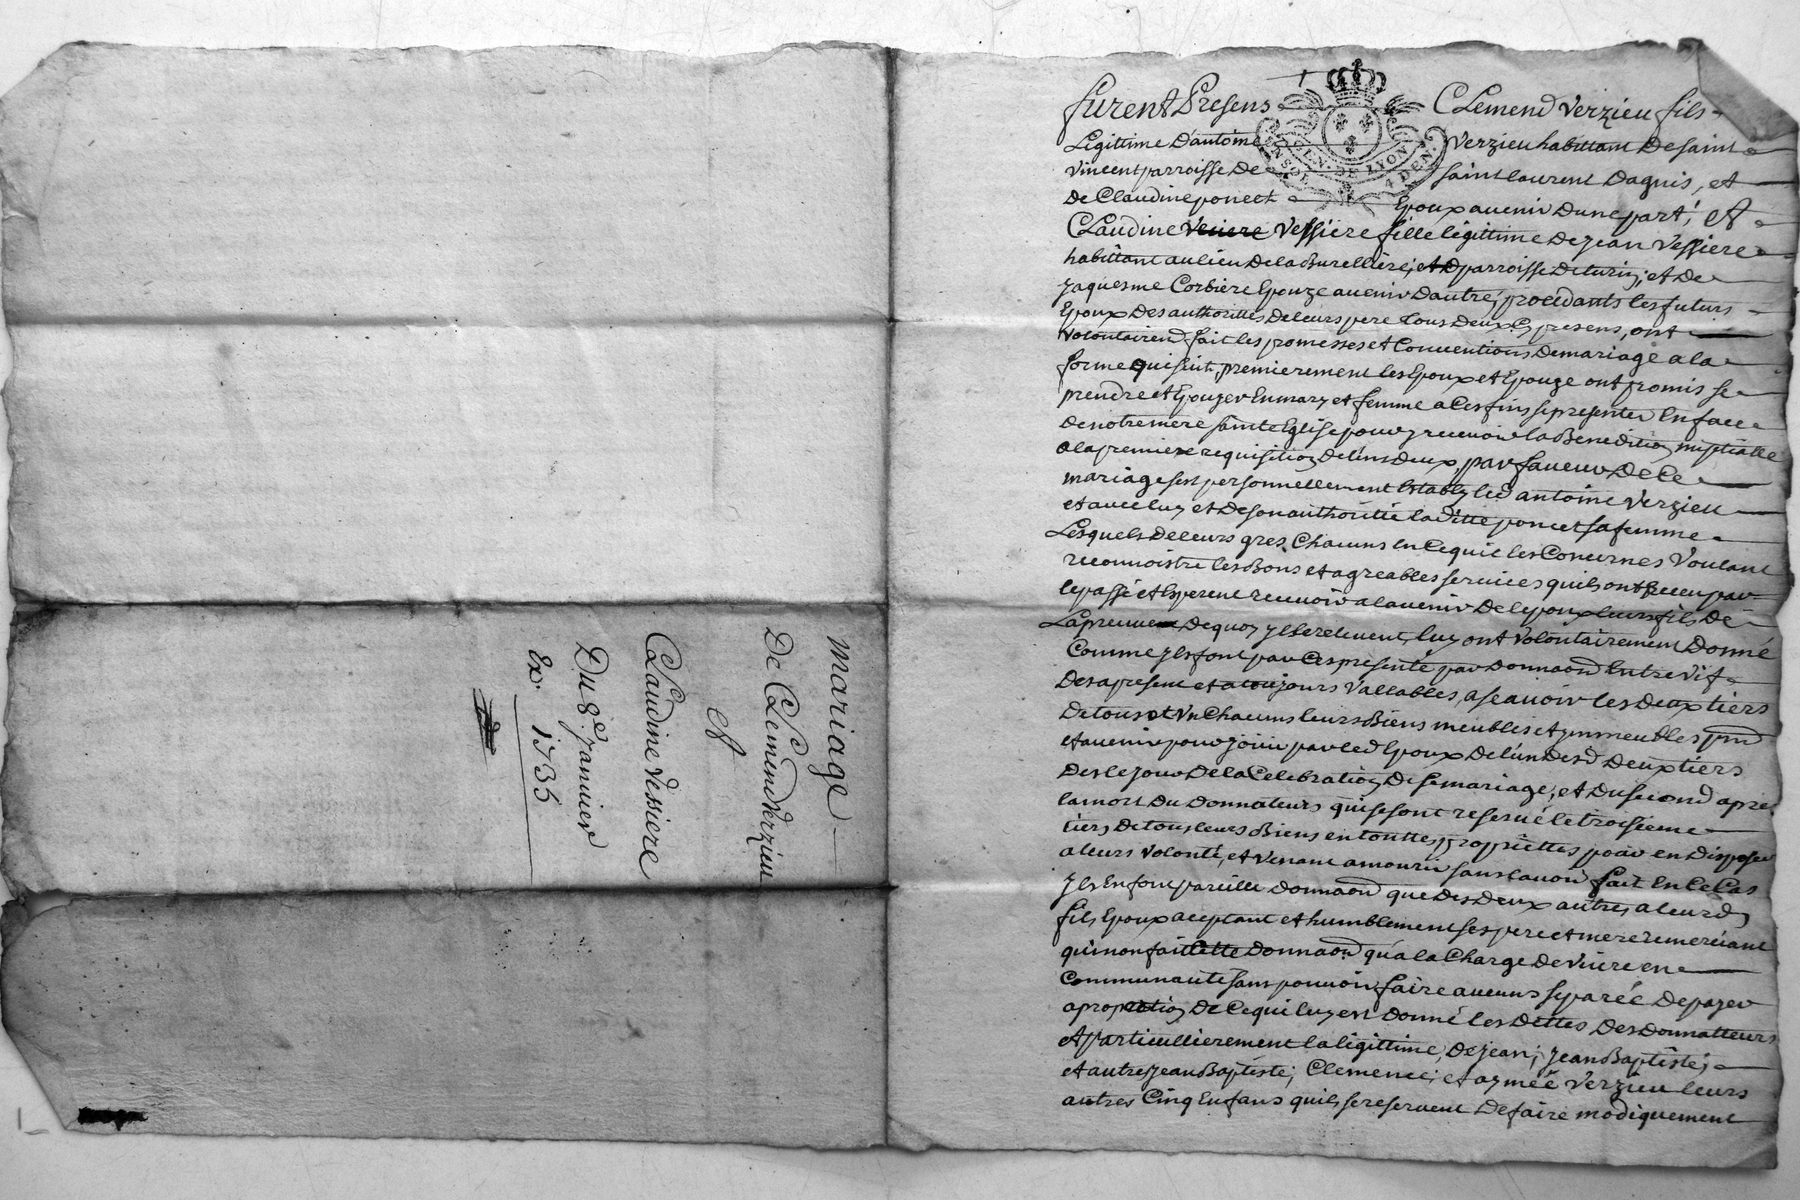 mariage
De Clemend Verzieu
et
Claudine Vessiere
Du 8e janvier
Ex. 1735
GEN. DE LYON
4 DEN.
furent Presens Clemend Verzieu fils
Legittime D'antoine Verzieu habittant De saint
vincent parroisse De saint laurent Dagnis, et
de Claudine poncet Epoux avenir Dune part, Et
Claudine Vessiere fille legittime De jean Vessiere
habittant au lieu De la Burelliere, parroisse De turin, et De
jaquesme Corbiere Epouze avenir Dautre, procedants les futurs
Epoux Des authorittes De leurs pere tous Deux Cy presens, ont
Volontairemt fait les promesses et Conventions De mariage a la
forme qui suit, premierement les Epoux et Epouze ont promis se
prendre et Epouzer En mary et femme a Ces fins se presenter En face
De notre mere sainte Eglise pour y recevoir la Benedition nuptialle
a la premiere requisition De lun Deux, par faveur De Ce
mariage sest personnellement Establyt led antoine Verzieu
et avec luy et De son authoritté laditte poncet sa femme
Lesquels De leurs gres Chacuns En Ce qui les Concernes Voulant
reconnoistre les Bons et agreables services quils ont Receu par
le passé et Esperent recevoir a lavenir De lepoux leurs fils De
La preuve De quoy y les relevent, luy ont Volontairement Donné
Comme yls font par Ces presente par Donnaon Entre Vif
Des a present et a toujours Vallables, a scavoir les Deux tiers
De tous et Un Chacuns leurs Biens meubles et ymmeubles pnt
et avenir pour jouir par led Epoux De lun Desd Deux tiers
Des le jour De la Celebration De se mariage, et Du second apres
la mort Du Donnateurs qui se sont reservé le troisieme
tiers De tous leurs Biens en touttes propriettes pour en Disposer
a leurs Volonté, et Venant a mourir sans lavoir fait En Ce Cas
yls En font pareille Donnaon que Des Deux autres a leurd
fils Epoux aceptant et humblement ses pere et mere remerciant
qui non fait Cette Donnaon qu'a la Charge De Vivre en
Communauté sans pouvoir faire aucuns separée De payer
a proportion De Ce qui luy est Donné les Dettes Des Donnatteurs
et particullierement la ligittime, De jean, jean Baptiste,
et autre jean Baptiste, Clemence, et aymée Verzieu leurs
autres Cinq Enfans quils se reservent De faire modiquement